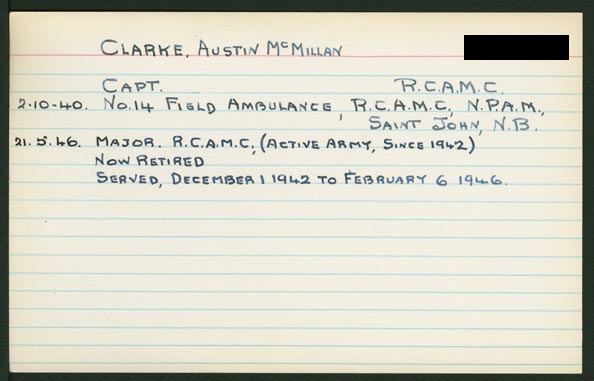 CLARKE, AUSTIN McMILLAN
CAPT. R.C.A.M.C.
2.10-40. No.14 FIELD AMBULANCE, R.C.A.M.C, N.P.A.M.,
SAINT JOHN, N.B.
21.5.46. MAJOR. R.C.A.M.C, (ACTIVE ARMY, SINCE 1942)
NOW RETIRED
SERVED, DECEMBER 1 1942 TO FEBRUARY 6 1946.